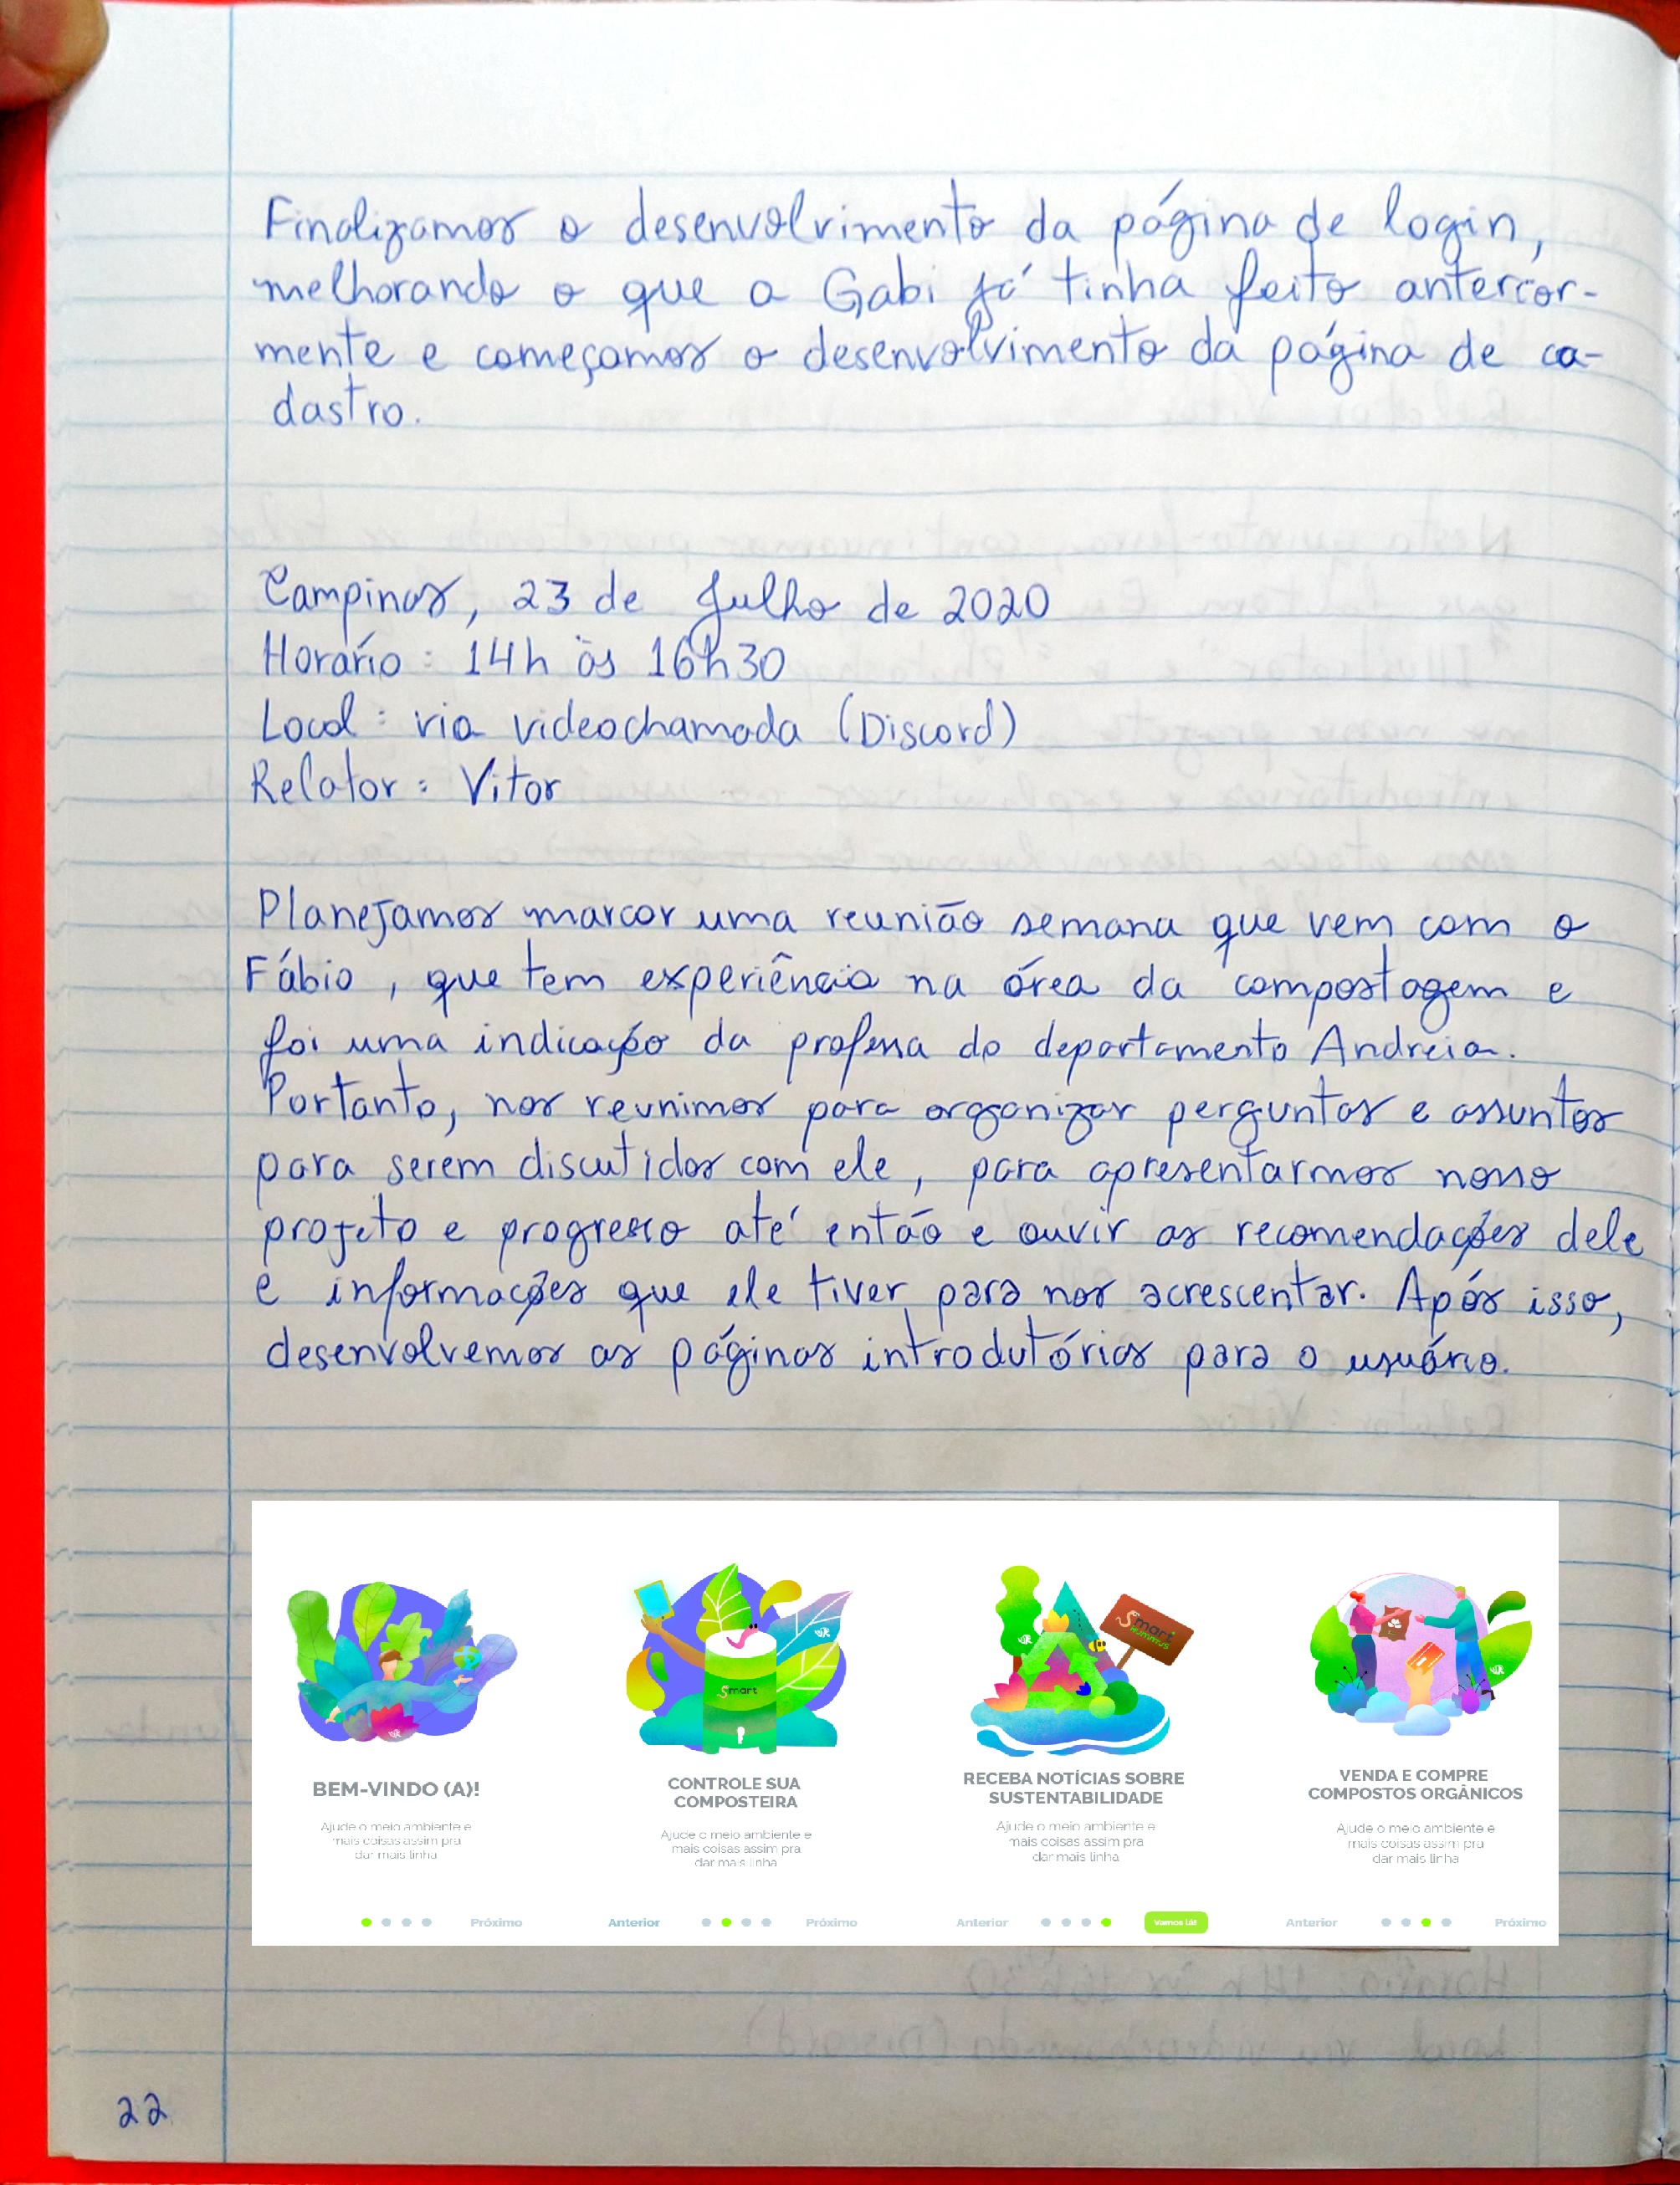 Finalizamos o desenvolvimento da página de login,
melhorando o que a Gabi já tinha feito anterior-
mente e começamos o desenvolvimento da página de ca-
dastro.
Campinas, 23 de Julho de 2020
Horário: 14h às 16h30
Local: via videochamada (Discord)
Relator: Vitor
Planejamos marcar uma reunião semana que vem com o
Fábio, que tem experiência na área da compostagem e
foi uma indicação da profma do departamento Andréia.
Portanto, nos reunimos para organizar perguntas e assuntos
para serem discutidos com ele, para apresentarmos nosso
projeto e progresso até então e ouvir as recomendações dele
e informações que ele tiver para nos acrescentar. Após isso,
desenvolvemos as páginas introdutórias para o usuário.
Smart
Smart
Hummus
BEM-VINDO (A)!
Ajude o meio ambiente e
mais coisas assim pra
dar mais linha
Próximo
CONTROLE SUA
COMPOSTEIRA
Ajude o meio ambiente e
mais coisas assim pra
dar mais linha
Anterior
Próximo
RECEBA NOTÍCIAS SOBRE
SUSTENTABILIDADE
Ajude o meio ambiente e
mais coisas assim pra
dar mais linha
Anterior
Vamos lá!
VENDA E COMPRE
COMPOSTOS ORGÂNICOS
Ajude o meio ambiente e
mais coisas assim pra
dar mais linha
Anterior
Próximo
22